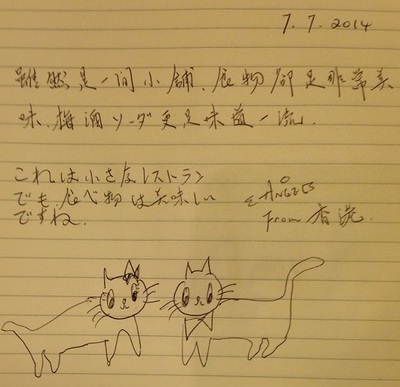 7.7.2014
雖然是一間小舖,食物卻是非常美
味,梅酒ソーダ更是味道一流.
これは小さなレストラン
でも,食べ物は美味しい
ですね.
ANGES
From 香港.